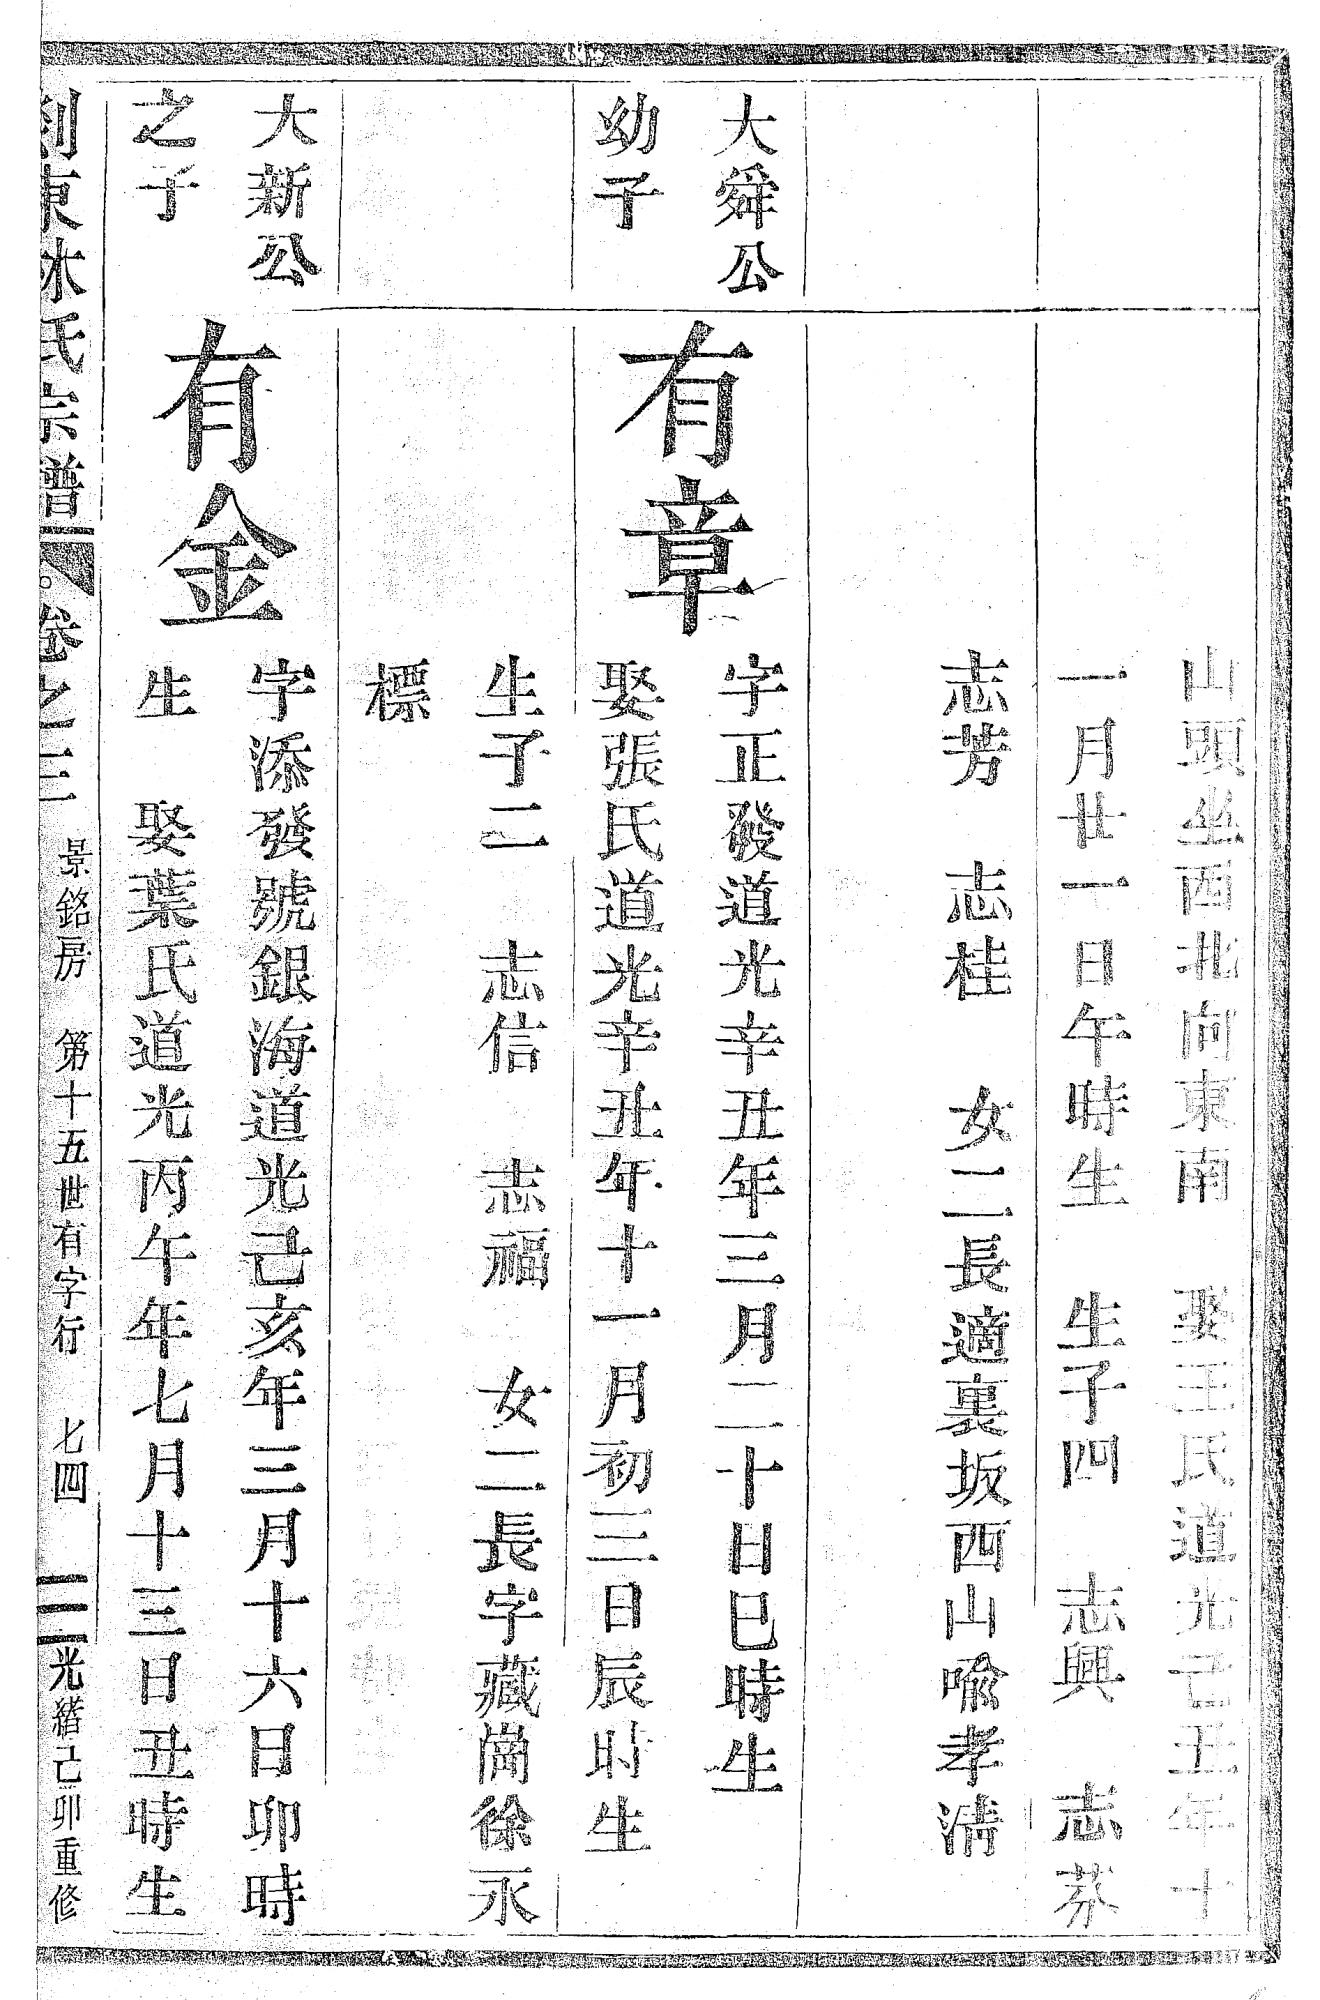 山頭坐西北向東南　娶王氏道光己丑年十
一月廿一日午時生　生子四　志興　志芬
志芳　志桂　女二長適裏坂西山喻孝淸
大舜公
幼子
有章
字正發道光辛丑年三月二十日巳時生
娶張氏道光辛丑年十一月初三日辰时生
生子二　志信　志福　女二長字藏崗徐永
標
大新公
之子
有金
字添發號銀海道光己亥年三月十六日卯時
生　娶葉氏道光丙午年七月十三日丑時生
剡東 氏宗譜　卷之三　景銘房　第十五世有字行　七四　光緒己卯重修